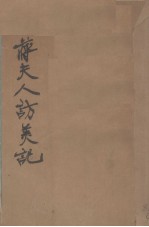 蔣夫人訪英記